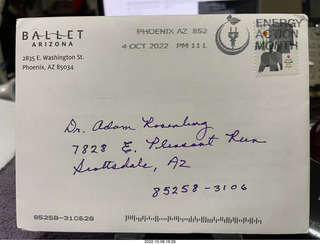 BALLET
ARIZONA
2835 E. Washington St.
Phoenix, AZ 85034
PHOENIX AZ 852
4 OCT 2022 PM 11 L
ENERGY
ACTION
MONTH
Dr. Adam Rosenberg
7828 E. Pleasant Run
Scottsdale, AZ
85258-3106
85258-310628
2022-10-08 18:29